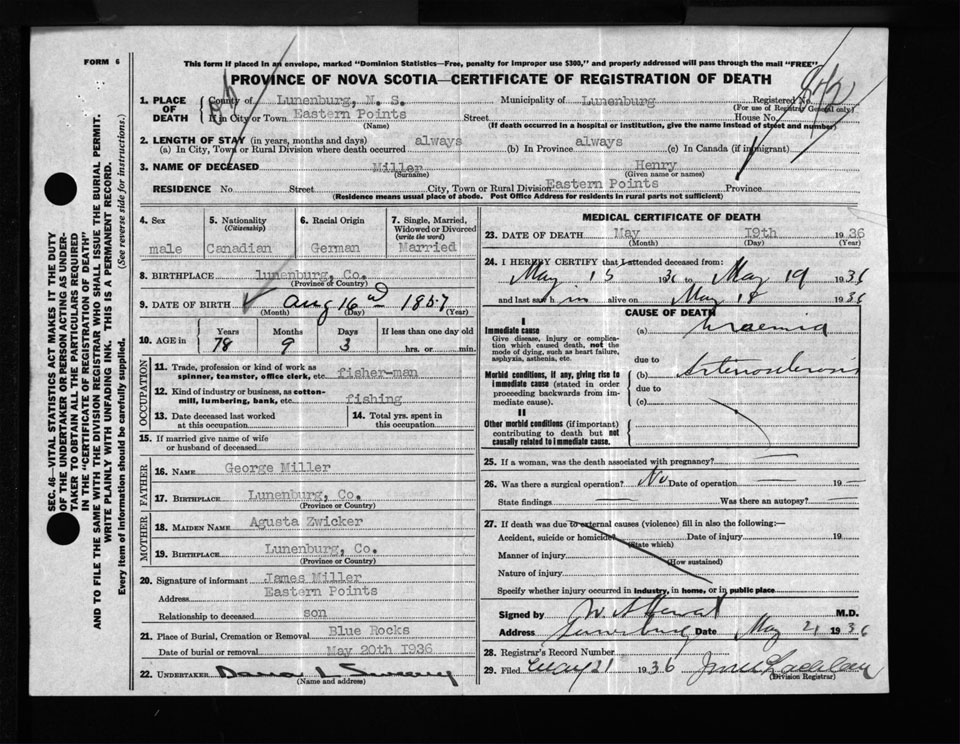 FORM 6
This form if placed in an envelope, marked "Dominion Statistics—Free, penalty for improper use $300," and properly addressed will pass through the mail "FREE"
PROVINCE OF NOVA SCOTIA—CERTIFICATE OF REGISTRATION OF DEATH
1. PLACE OF DEATH County of Lunenburg, N. S. Municipality of Lunenburg Registered No.
(For use of Registrar General only)
If in City or Town Eastern Points Street House No.
(Name) (If death occurred in a hospital or institution, give the name instead of street and number)
2. LENGTH OF STAY (in years, months and days)
(a) In City, Town or Rural Division where death occurred always (b) In Province always (c) In Canada (if immigrant)
3. NAME OF DECEASED Miller Henry
(Surname) (Given name or names)
RESIDENCE No Street City, Town or Rural Division Eastern Points Province
(Residence means usual place of abode. Post Office Address for residents in rural parts not sufficient)
4. Sex male
5. Nationality (Citizenship) Canadian
6. Racial Origin German
7. Single, Married, Widowed or Divorced (write the word) Married
8. BIRTHPLACE lunenburg, Co.
(Province or Country)
9. DATE OF BIRTH Aug 16 1857
(Month) (Day) (Year)
10. AGE in Years Months Days If less than one day old
78 9 3 hrs. or min.
OCCUPATION
11. Trade, profession or kind of work as spinner, teamster, office clerk, etc. fisher-man
12. Kind of industry or business, as cotton-mill, lumbering, bank, etc. fishing
13. Date deceased last worked at this occupation
14. Total yrs. spent in this occupation
15. If married give name of wife or husband of deceased
FATHER
16. NAME George Miller
17. BIRTHPLACE Lunenburg, Co.
(Province or Country)
MOTHER
18. MAIDEN NAME Agusta Zwicker
19. BIRTHPLACE Lunenburg, Co.
(Province or Country)
20. Signature of informant James Miller
Address Eastern Points
Relationship to deceased son
21. Place of Burial, Cremation or Removal Blue Rocks
Date of burial or removal May 20th 1936
22. UNDERTAKER
(Name and address)
MEDICAL CERTIFICATE OF DEATH
23. DATE OF DEATH May 19th 1936
(Month) (Day) (Year)
24. I HEREBY CERTIFY that I attended deceased from:
May 15 1936 to May 19 1936
and last saw him alive on May 18 1936
CAUSE OF DEATH
I
Immediate cause
Give disease, injury or complication which caused death, not the mode of dying, such as heart failure, asphyxia, asthenia, etc.
(a) Uraemia
due to
Morbid conditions, if any, giving rise to immediate cause (stated in order proceeding backwards from immediate cause).
(b) Arteriosclerosis
due to
(c)
II
Other morbid conditions (if important) contributing to death but not causally related to immediate cause.
25. If a woman, was the death associated with pregnancy?
26. Was there a surgical operation? No Date of operation 19
State findings Was there an autopsy?
27. If death was due to external causes (violence) fill in also the following:—
Accident, suicide or homicide? Date of injury 19
(State which)
Manner of injury
(How sustained)
Nature of injury
Specify whether injury occurred in industry, in home, or in public place
Signed by M.D.
Address Lunenburg Date May 21 1936
28. Registrar's Record Number
29. Filed May 21 1936
(Division Registrar)
SEC. 46—VITAL STATISTICS ACT MAKES IT THE DUTY
OF THE UNDERTAKER OR PERSON ACTING AS UNDER-
TAKER TO OBTAIN ALL THE PARTICULARS REQUIRED
IN THE "CERTIFICATE OF REGISTRATION OF DEATH"
AND TO FILE THE SAME WITH THE DIVISION REGISTRAR WHO SHALL ISSUE THE BURIAL PERMIT.
WRITE PLAINLY WITH UNFADING INK. THIS IS A PERMANENT RECORD.
Every item of information should be carefully supplied. (See reverse side for instructions.)